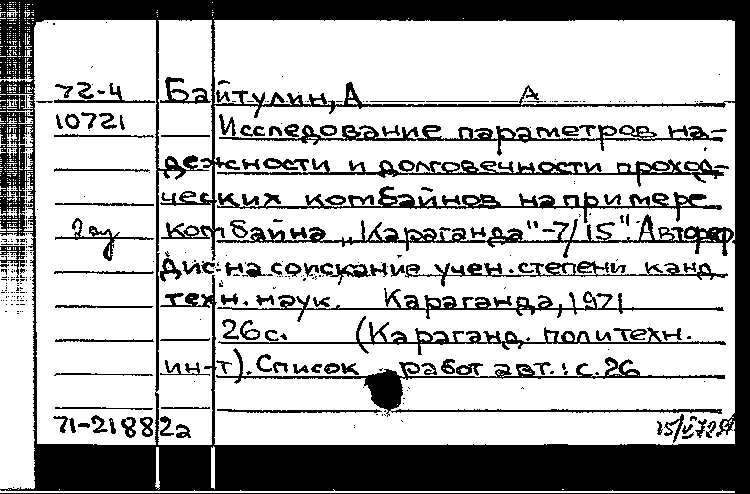 72-4 Байтулин, А А
10721 Исследование параметров на-
дежности и долговечности проход-
ческих комбайнов на примере
комбайна „Караганда"-7/15". Автореф.
Дис. на соискание учен. степени канд
техн. наук. Караганда, 1971.
26с. (Караганд. политехн.
ин-т). Список работ авт.: с. 26
71-21882а